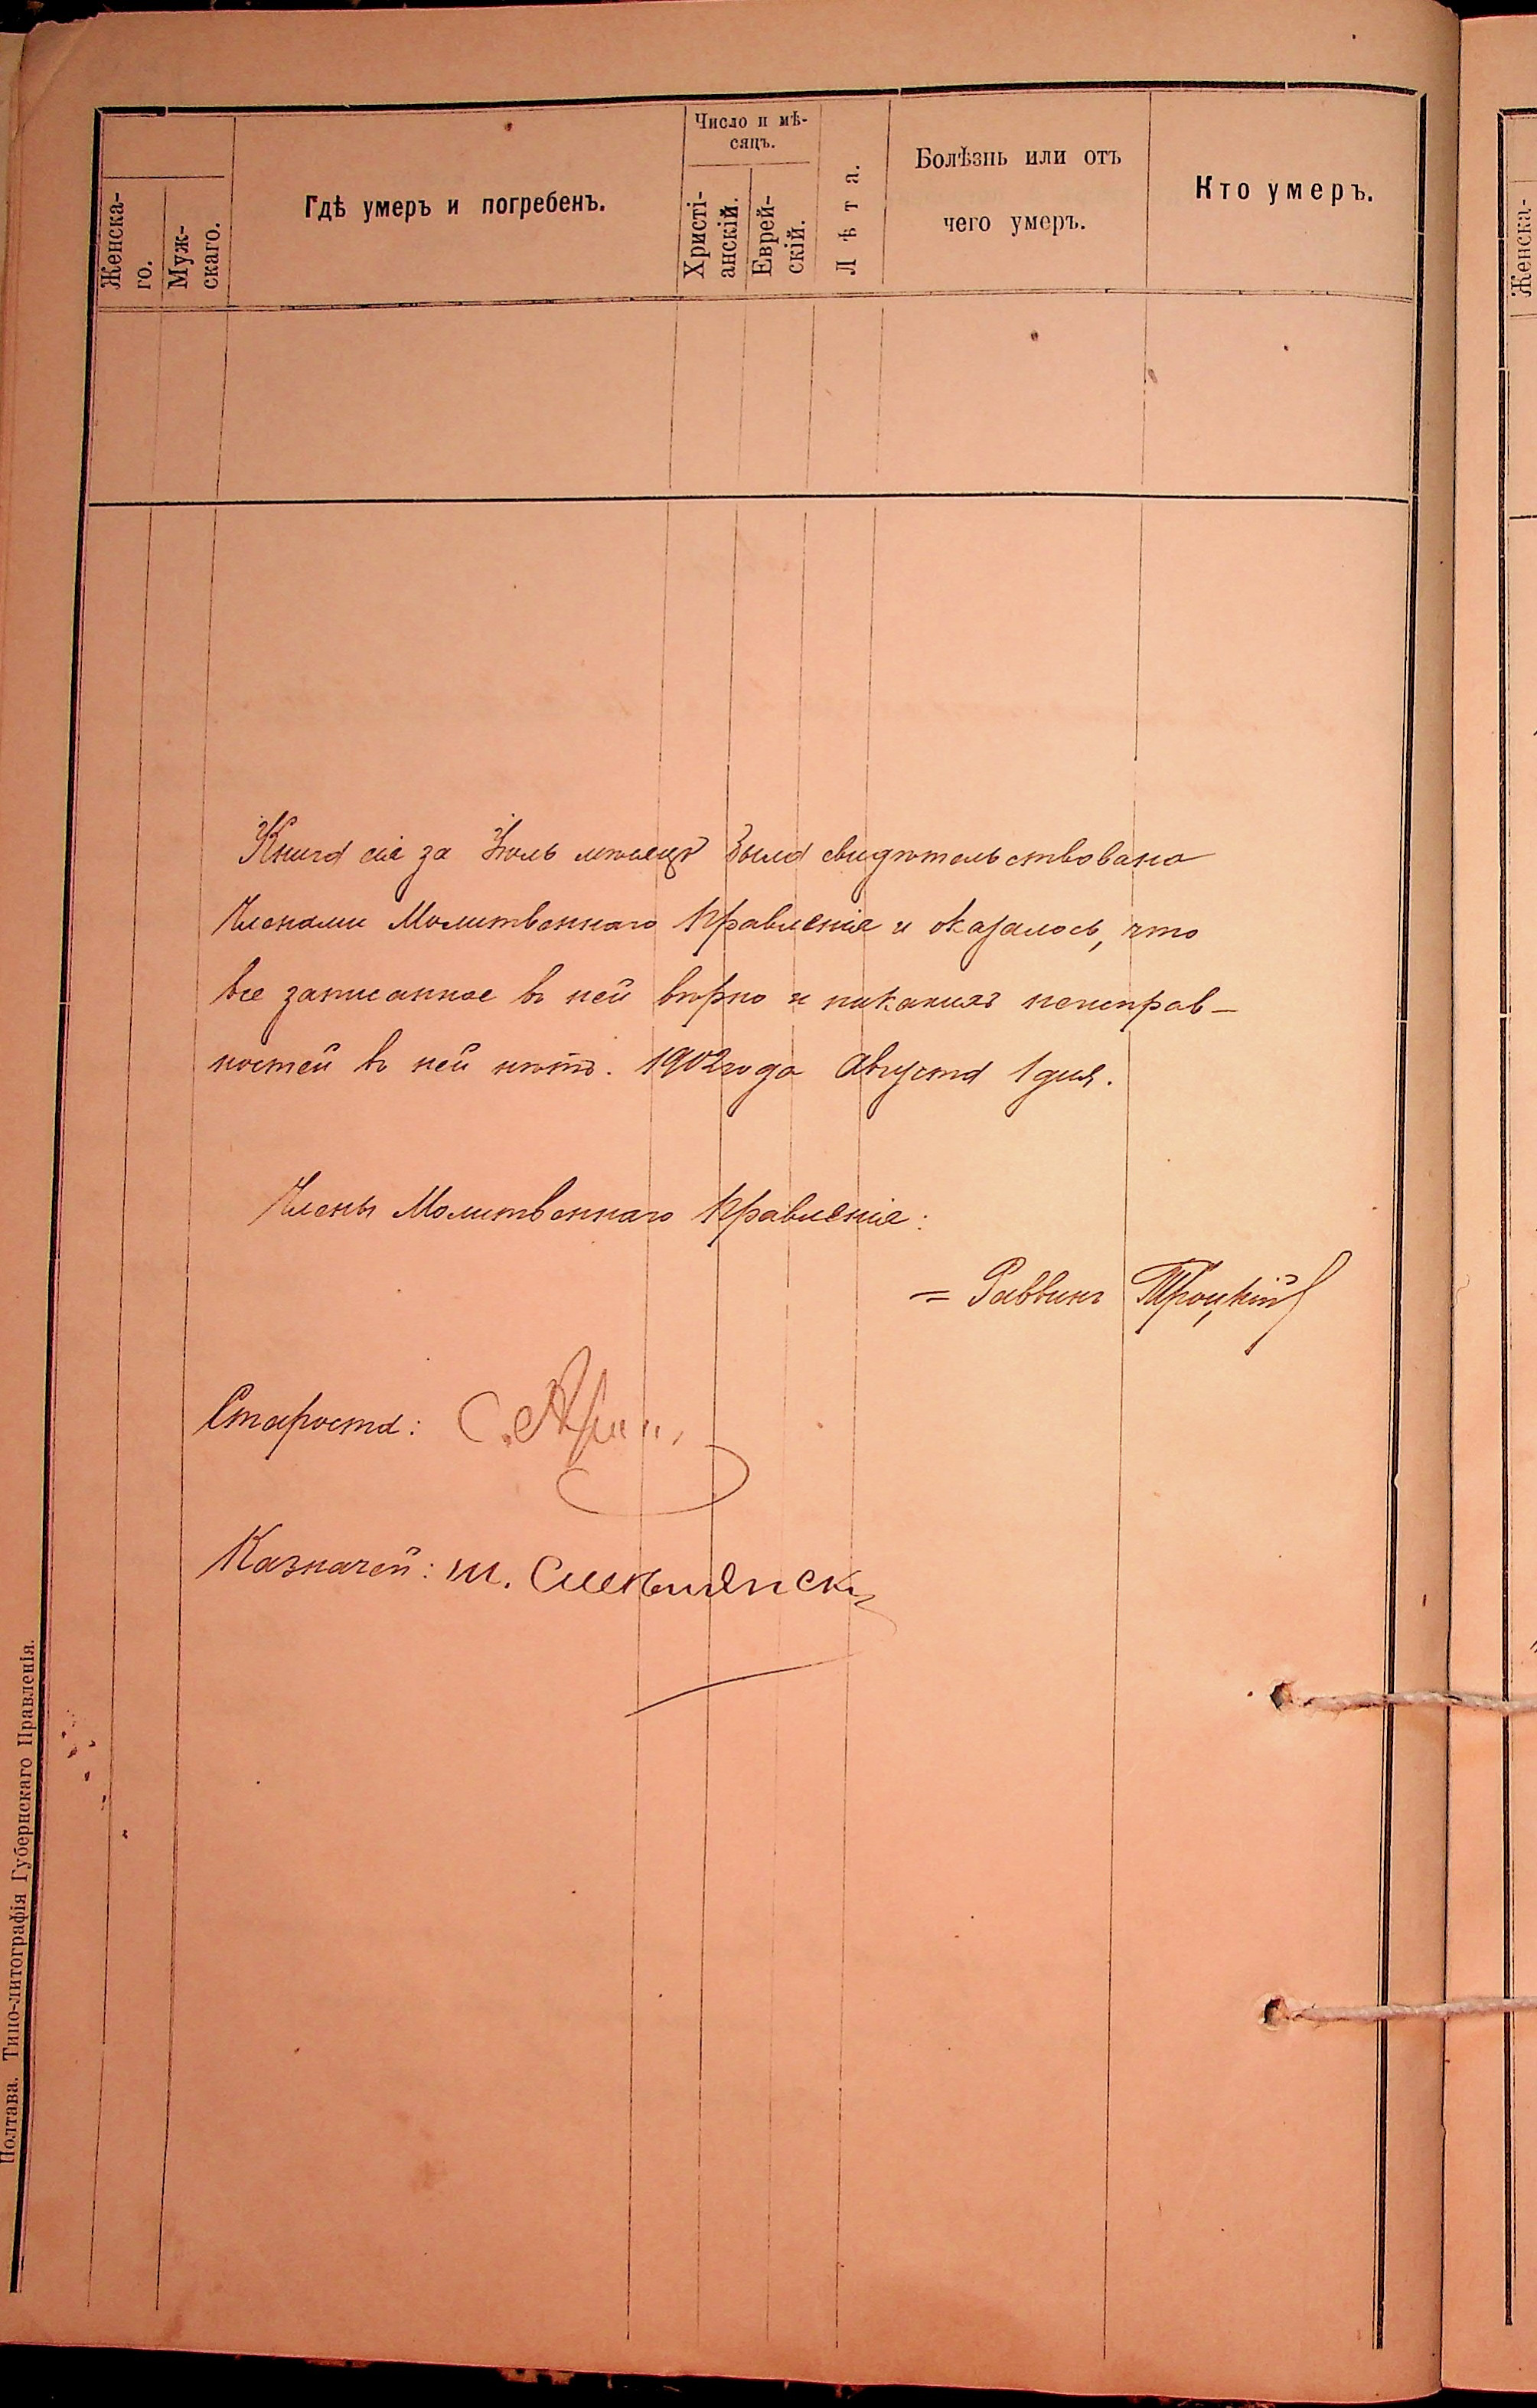 Женска-
го.
Муж-
скаго.
Гдѣ умеръ и погребенъ.
Число и мѣ-
сяцъ.
Христі-
анскій.
Еврей-
скій.
Лѣта.
Болѣзнь или отъ
чего умеръ.
Кто умеръ.
Женска-
Книга сія за Іюль мѣсяцъ была свидѣтельствована
Членами Молитвеннаго Правленія и оказалось, что
все записанное въ ней вѣрно и никакихъ неисправ-
ностей въ ней нѣтъ. 1902 года Августа 1 дня.
Члены Молитвеннаго Правленія:
= Раввинъ Троцкій
Староста: С.
Казначей: Ш.
Полтава. Типо-литографія Губернскаго Правленія.